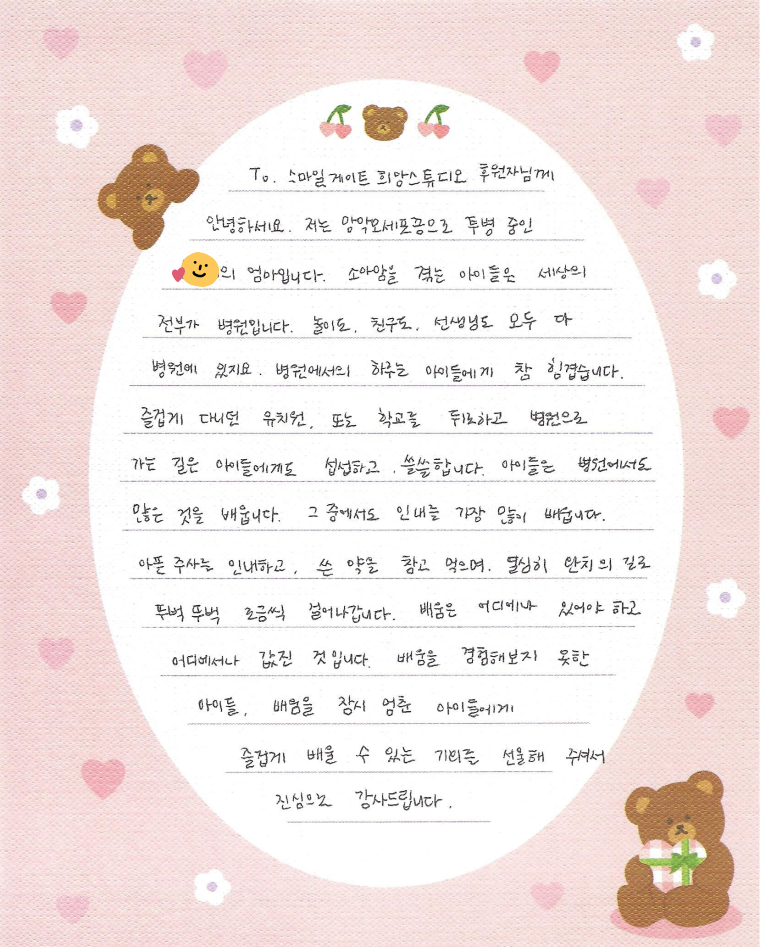 To. 스마일게이트 희망스튜디오 후원자님께
안녕하세요. 저는 망막모세포종으로 투병 중인
의 엄마입니다. 소아암을 겪는 아이들은 세상의
전부가 병원입니다. 놀이도, 친구도, 선생님도 모두 다
병원에 있지요. 병원에서의 하루는 아이들에게 참 힘겹습니다.
즐겁게 다니던 유치원, 또는 학교를 뒤로하고 병원으로
가는 길은 아이들에게도 섭섭하고, 쓸쓸합니다. 아이들은 병원에서도
많은 것을 배웁니다. 그 중에서도 인내를 가장 많이 배웁니다.
아픈 주사를 인내하고, 쓴 약을 참고 먹으며, 열심히 완치의 길로
뚜벅 뚜벅 조금씩 걸어나갑니다. 배움은 어디에나 있어야 하고
어디에서나 값진 것입니다. 배움을 경험해보지 못한
아이들, 배움을 잠시 멈춘 아이들에게
즐겁게 배울 수 있는 기회를 선물해 주셔서
진심으로 감사드립니다.